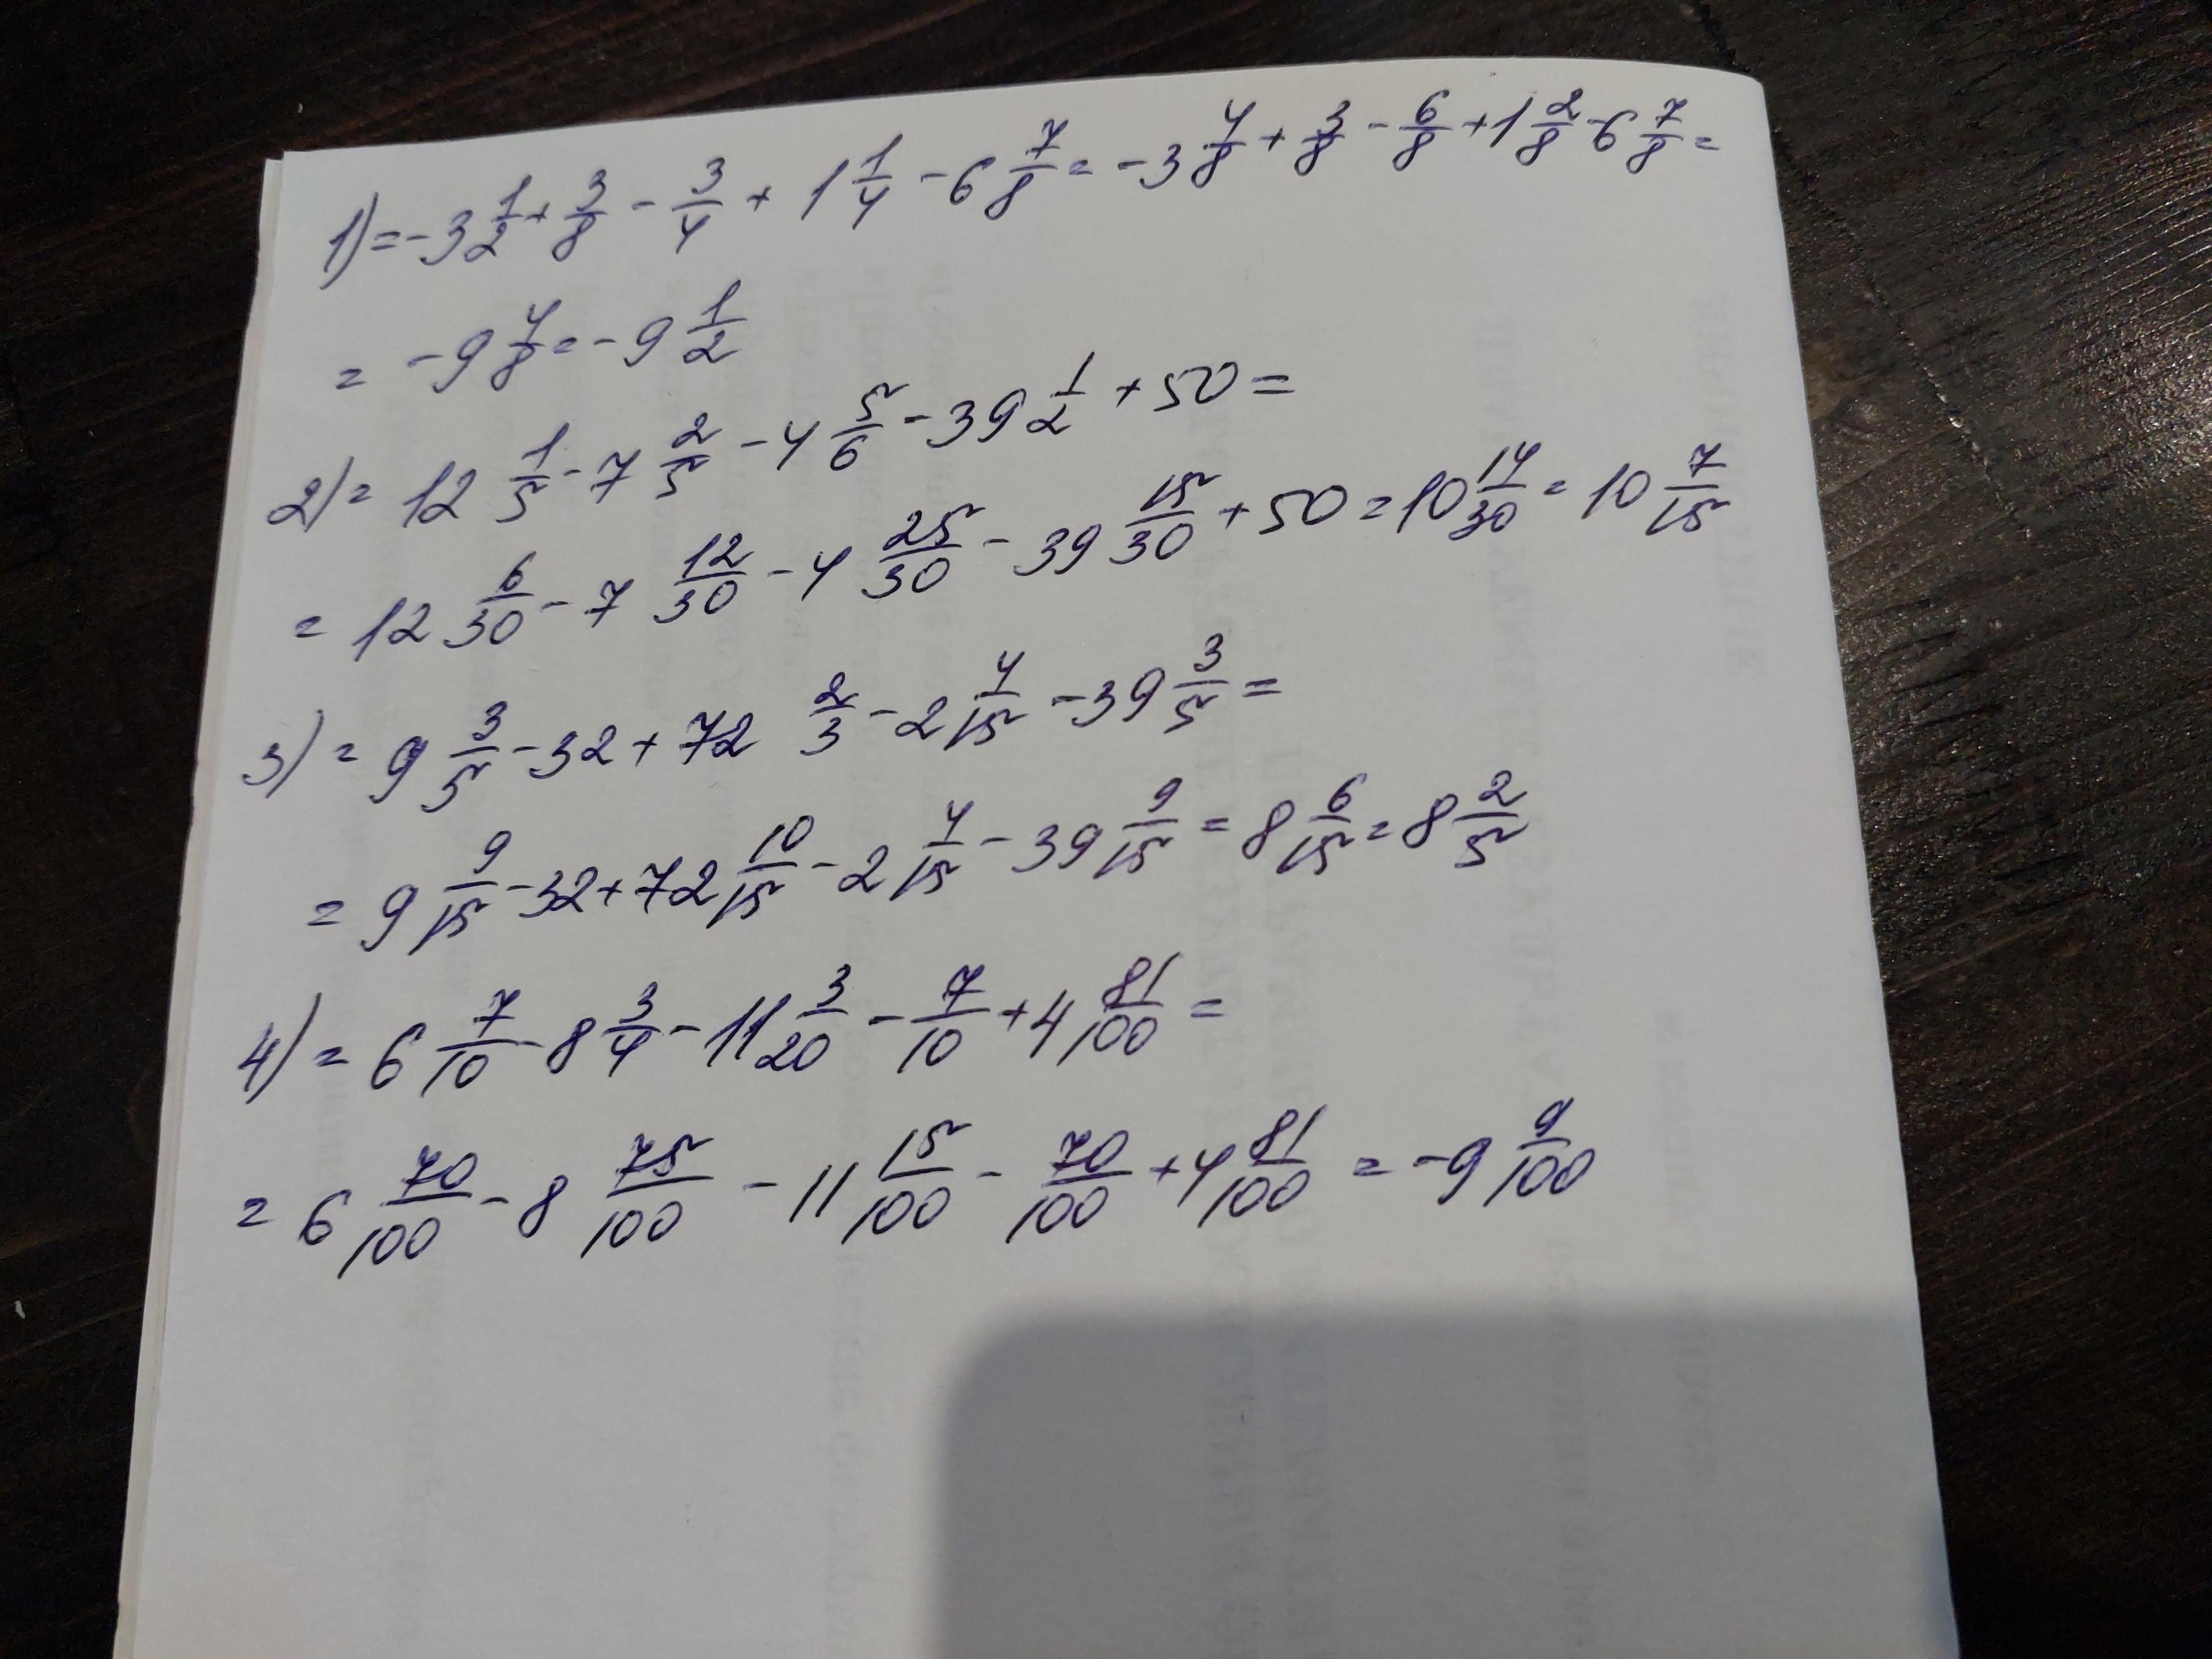 1) = -3 1/2 + 3/8 - 3/4 + 1 1/4 - 6 7/8 = -3 4/8 + 3/8 - 6/8 + 1 2/8 - 6 7/8 =
= -9 4/8 = -9 1/2
2) = 12 1/5 - 7 2/5 - 4 5/6 - 39 1/2 + 50 =
= 12 6/30 - 7 12/30 - 4 25/30 - 39 15/30 + 50 = 10 14/30 = 10 7/15
3) = 9 3/5 - 32 + 72 2/3 - 2 4/15 - 39 3/5 =
= 9 9/15 - 32 + 72 10/15 - 2 4/15 - 39 9/15 = 8 6/15 = 8 2/5
4) = 6 7/10 - 8 3/4 - 11 3/20 - 7/10 + 4 81/100 =
= 6 70/100 - 8 75/100 - 11 15/100 - 70/100 + 4 81/100 = -9 9/100